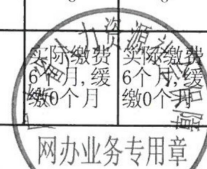 实际缴费
6个月,缓
缴0个月
实际缴费
6个月,缓
缴0个月
力资源
网办业务专用章